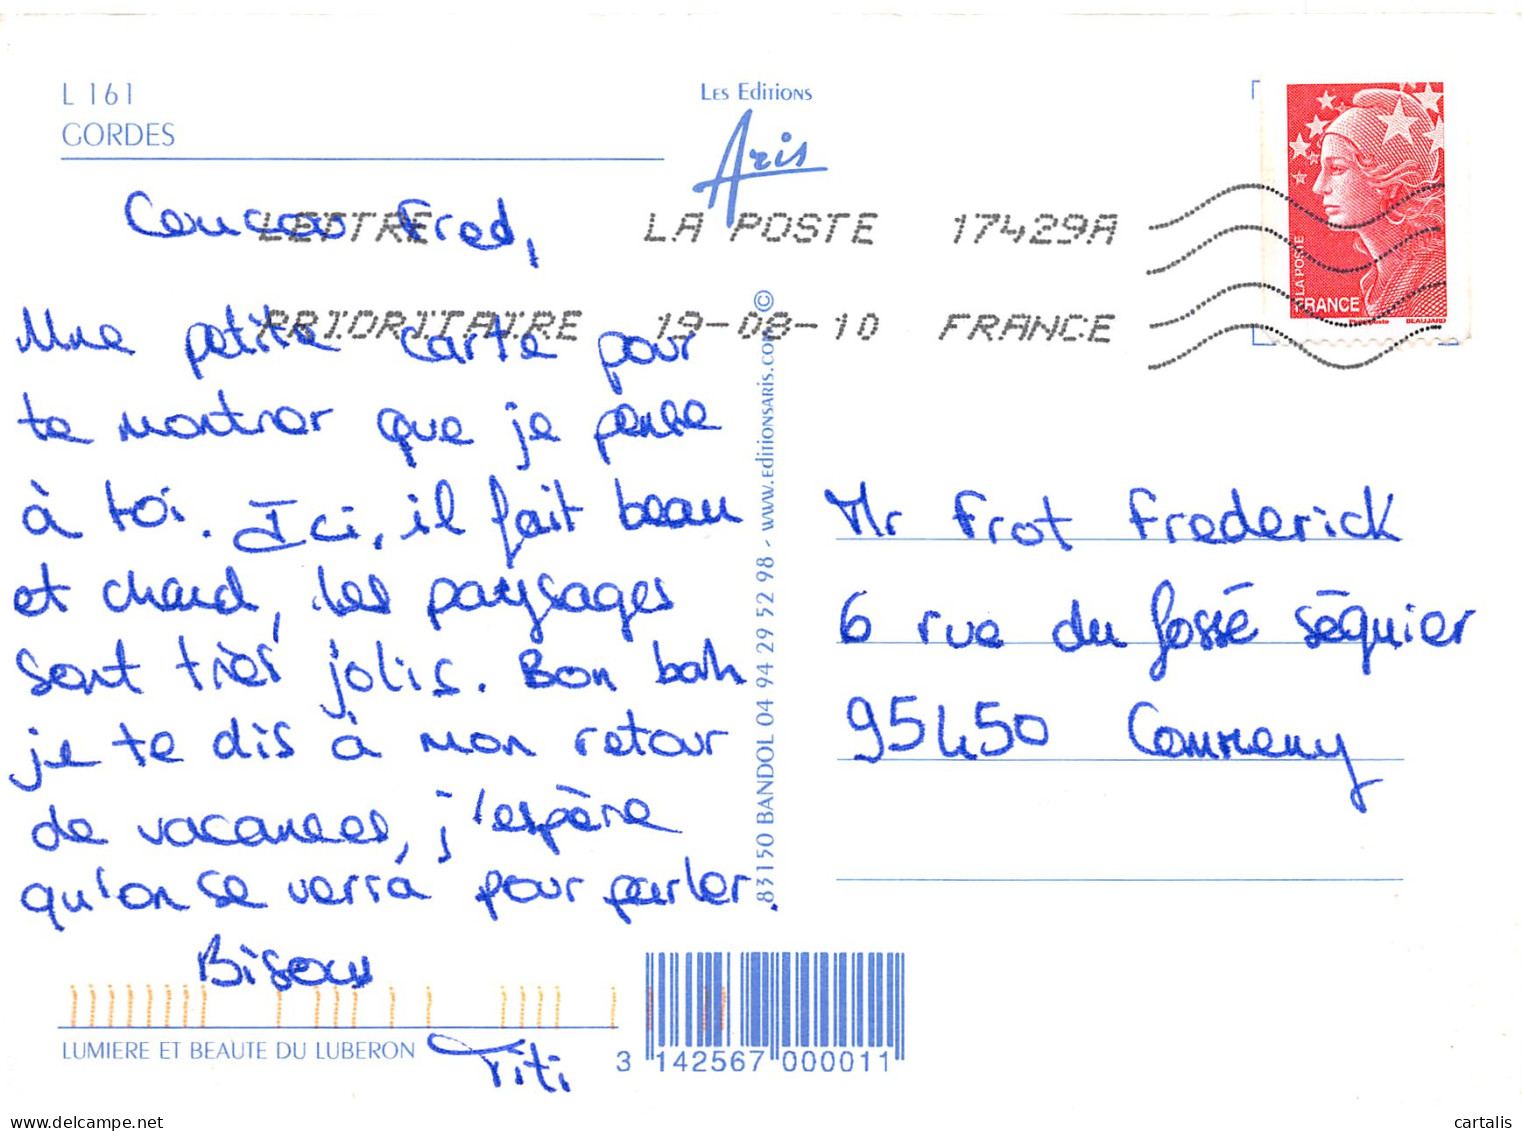 L 161
GORDES
Les Editions
Aris
LETTRE LA POSTE 17429A
PRIORITAIRE 19-08-10 FRANCE
LA POSTE
FRANCE
BEAUJARD
Coucou Fred,
Une petite carte pour
te montrer que je pense
à toi. Ici, il fait beau
et chaud, les paysages
sont très jolis. Bon bah
je te dis à mon retour
de vacances, j'espère
qu'on se verra pour parler.
Bisous
Titi
83150 BANDOL 04 94 29 52 98 - www.editionsaris.com ©
Mr Frot Frederick
6 rue du fossé séquier
95450 Commeny
LUMIERE ET BEAUTE DU LUBERON
3 142567 000011
cartalis